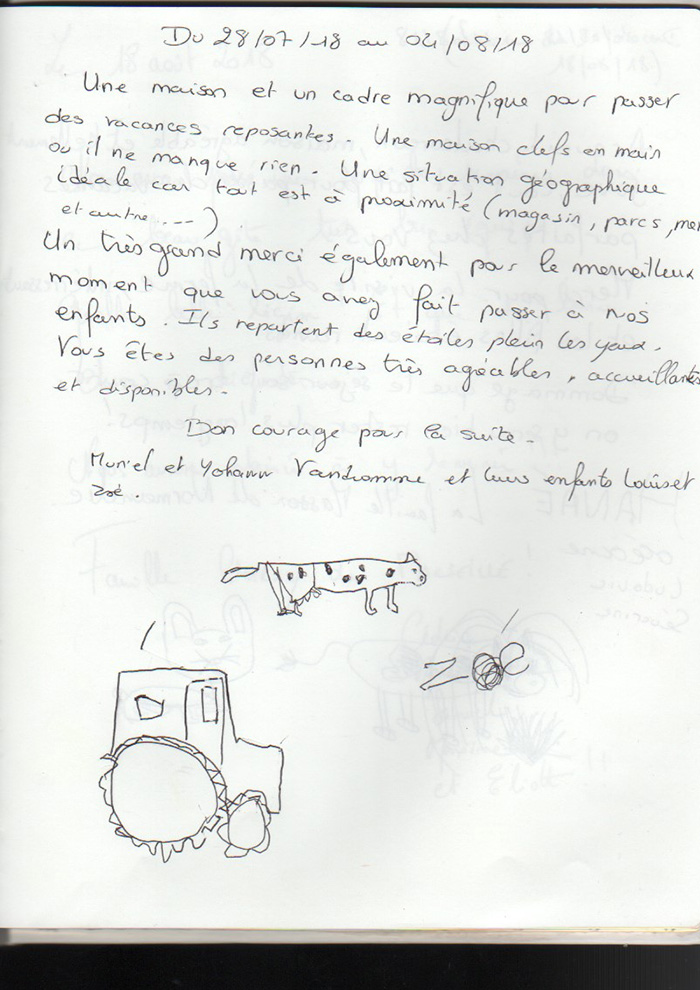 Du 28/07/18 au 04/08/18
Une maison et un cadre magnifique pour passer
des vacances reposantes. Une maison clefs en main
où il ne manque rien. Une situation géographique
idéale car tout est à proximité (magasin, parcs, mer
et autre....)
Un très grand merci également pour le merveilleux
moment que vous avez fait passer à nos
enfants. Ils repartent des étoiles plein les yeux.
Vous êtes des personnes très agréables, accueillantes
et disponibles.
Bon courage pour la suite.
Muriel et Yohann Vandromme et leurs enfants Louis et
Zoé.
ZOÉ